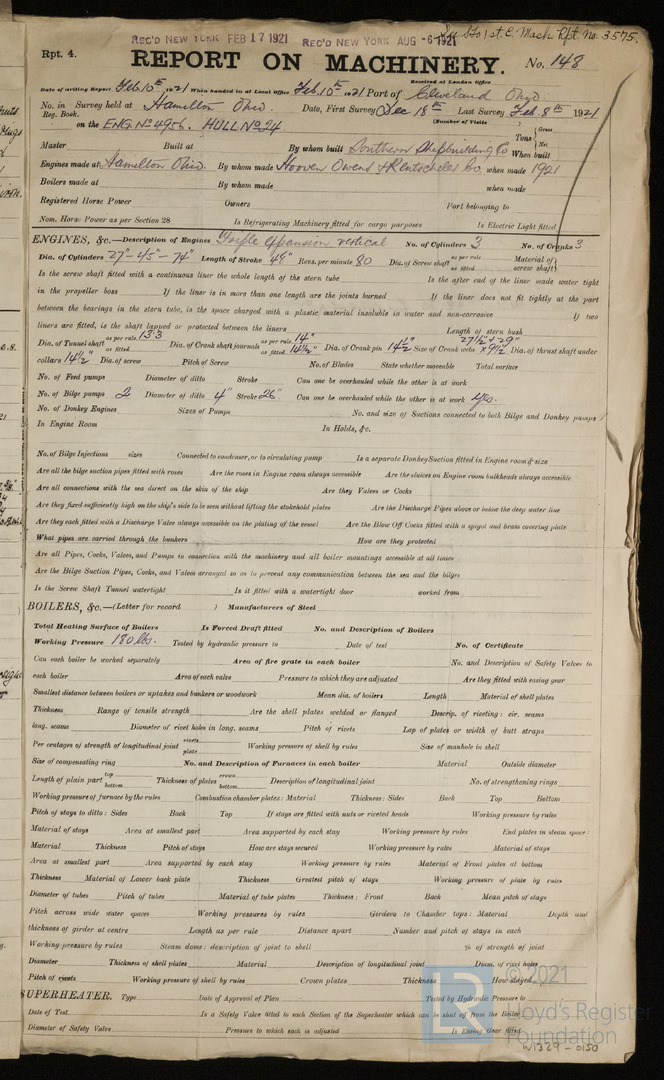 See Sfo 1st E. Mach Rpt No. 3575.
REC'D NEW YORK FEB 17 1921 REC'D NEW YORK AUG -6 1921
Rpt. 4.
REPORT ON MACHINERY. No. 148
Received at London Office
Date of writing Report Feb. 10th 1921 When handed in at Local Office Feb. 10th 1921 Port of Cleveland Ohio.
No. in Reg. Book. Survey held at Hamilton Ohio. Date, First Survey Dec 18th Last Survey Feb 8th 1921
(Number of Visits
on the ENG. No 4956. HULL No 24 Tons { Gross Net
Master Built at By whom built Southern Shipbuilding Co When built
Engines made at Hamilton Ohio. By whom made Hooven Owens & Rentschler Co. when made 1921
Boilers made at By whom made when made
Registered Horse Power Owners Port belonging to
Nom. Horse Power as per Section 28 Is Refrigerating Machinery fitted for cargo purposes Is Electric Light fitted
ENGINES, &c.—Description of Engines Triple expansion vertical No. of Cylinders 3 No. of Cranks 3
Dia. of Cylinders 27"-45"-74" Length of Stroke 48" Revs. per minute 80 Dia. of Screw shaft as per rule as fitted Material of screw shaft
Is the screw shaft fitted with a continuous liner the whole length of the stern tube Is the after end of the liner made water tight
in the propeller boss If the liner is in more than one length are the joints burned If the liner does not fit tightly at the part
between the bearings in the stern tube, is the space charged with a plastic material insoluble in water and non-corrosive If two
liners are fitted, is the shaft lapped or protected between the liners Length of stern bush
Dia. of Tunnel shaft as per rule 13.3 as fitted Dia. of Crank shaft journals as per rule 14" as fitted 14½" Dia. of Crank pin 14½ Size of Crank webs 27½ x 29" x 9½ Dia. of thrust shaft under
collars 14½" Dia. of screw Pitch of Screw No. of Blades State whether moveable Total surface
No. of Feed pumps Diameter of ditto Stroke Can one be overhauled while the other is at work
No. of Bilge pumps 2 Diameter of ditto 4" Stroke 26" Can one be overhauled while the other is at work yes.
No. of Donkey Engines Sizes of Pumps No. and size of Suctions connected to both Bilge and Donkey pumps
In Engine Room In Holds, &c.
No. of Bilge Injections sizes Connected to condenser, or to circulating pump Is a separate Donkey Suction fitted in Engine room & size
Are all the bilge suction pipes fitted with roses Are the roses in Engine room always accessible Are the sluices on Engine room bulkheads always accessible
Are all connections with the sea direct on the skin of the ship Are they Valves or Cocks
Are they fixed sufficiently high on the ship's side to be seen without lifting the stokehold plates Are the Discharge Pipes above or below the deep water line
Are they each fitted with a Discharge Valve always accessible on the plating of the vessel Are the Blow Off Cocks fitted with a spigot and brass covering plate
What pipes are carried through the bunkers How are they protected
Are all Pipes, Cocks, Valves, and Pumps in connection with the machinery and all boiler mountings accessible at all times
Are the Bilge Suction Pipes, Cocks, and Valves arranged so as to prevent any communication between the sea and the bilges
Is the Screw Shaft Tunnel watertight Is it fitted with a watertight door worked from
BOILERS, &c.—(Letter for record ) Manufacturers of Steel
Total Heating Surface of Boilers Is Forced Draft fitted No. and Description of Boilers
Working Pressure 180 lbs. Tested by hydraulic pressure to Date of test No. of Certificate
Can each boiler be worked separately Area of fire grate in each boiler No. and Description of Safety Valves to
each boiler Area of each valve Pressure to which they are adjusted Are they fitted with easing gear
Smallest distance between boilers or uptakes and bunkers or woodwork Mean dia. of boilers Length Material of shell plates
Thickness Range of tensile strength Are the shell plates welded or flanged Descrip. of riveting: cir. seams
long. seams Diameter of rivet holes in long. seams Pitch of rivets Lap of plates or width of butt straps
Per centages of strength of longitudinal joint rivets plate Working pressure of shell by rules Size of manhole in shell
Size of compensating ring No. and Description of Furnaces in each boiler Material Outside diameter
Length of plain part top bottom Thickness of plates crown bottom Description of longitudinal joint No. of strengthening rings
Working pressure of furnace by the rules Combustion chamber plates: Material Thickness: Sides Back Top Bottom
Pitch of stays to ditto: Sides Back Top If stays are fitted with nuts or riveted heads Working pressure by rules
Material of stays Area at smallest part Area supported by each stay Working pressure by rules End plates in steam space:
Material Thickness Pitch of stays How are stays secured Working pressure by rules Material of stays
Area at smallest part Area supported by each stay Working pressure by rules Material of Front plates at bottom
Thickness Material of Lower back plate Thickness Greatest pitch of stays Working pressure of plate by rules
Diameter of tubes Pitch of tubes Material of tube plates Thickness: Front Back Mean pitch of stays
Pitch across wide water spaces Working pressures by rules Girders to Chamber tops: Material Depth and
thickness of girder at centre Length as per rule Distance apart Number and pitch of stays in each
Working pressure by rules Steam dome: description of joint to shell % of strength of joint
Diameter Thickness of shell plates Material Description of longitudinal joint Diam. of rivet holes
Pitch of rivets Working pressure of shell by rules Crown plates Thickness How stayed
SUPERHEATER. Type Date of Approval of Plan Tested by Hydraulic Pressure to
Date of Test Is a Safety Valve fitted to each Section of the Superheater which can be shut off from the Boiler
Diameter of Safety Valve Pressure to which each is adjusted Is Easing Gear fitted
LR © 2021 Lloyd's Register Foundation
W1329-0150